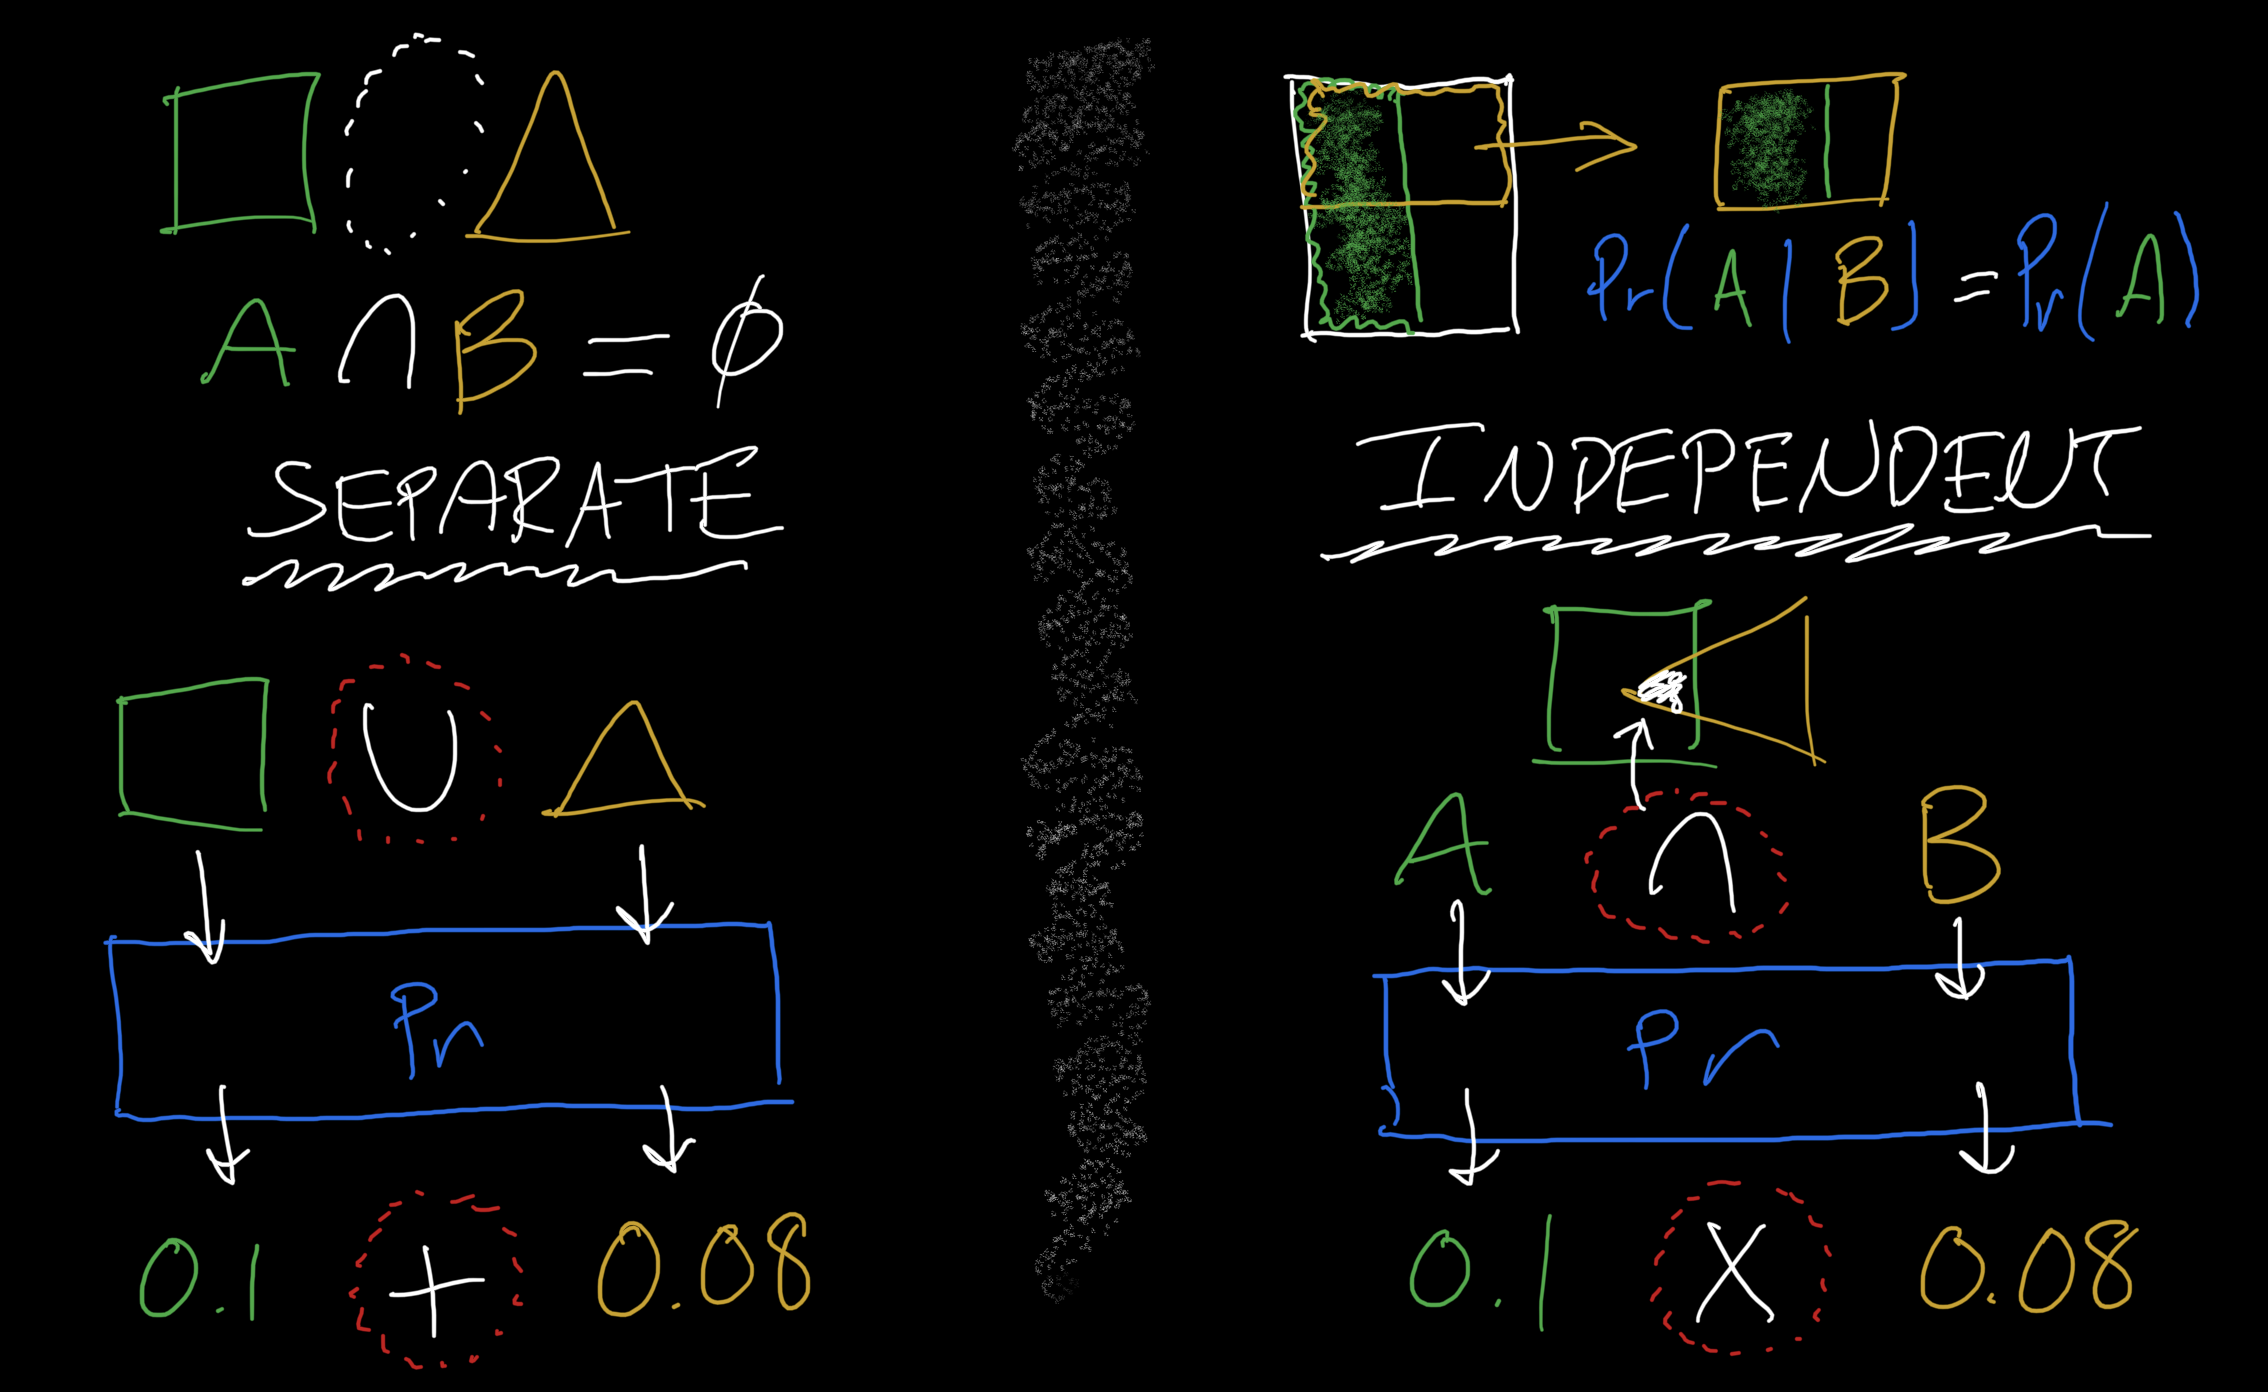 A ∩ B = ϕ
SEPARATE
∪
Pr
0.1 + 0.08
Pr(A|B) = Pr(A)
INDEPENDENT
A ∩ B
Pr
0.1 X 0.08